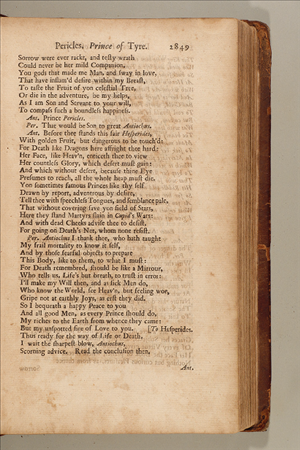 Pericles, Prince of Tyre. 2849
Sorrow were ever rackt, and testy wrath
Could never be her mild Companion.
You gods that made me Man, and sway in love,
That have inflam'd desire within my Breast,
To taste the Fruit of yon celestial Tree,
Or die in the adventure, be my helps,
As I am Son and Servant to your will,
To compass such a boundless happiness.
Ant. Prince Pericles.
Per. That would be Son to great Antiochus.
Ant. Before thee stands this fair Hesperides,
With golden Fruit, but dangerous to be touch'd:
For Death like Dragons here affright thee hard:
Her Face, like Heav'n, enticeth thee to view
Her countless Glory, which desert must gain:
And which without desert, because thine Eye
Presumes to reach, all the whole heap must die.
Yon sometimes famous Princes like thy self
Drawn by report, adventrous by desire,
Tell thee with speechless Tongues, and semblance pale,
That without covering save yon field of Stars,
Here they stand Martyrs slain in Cupid's Wars:
And with dead Cheeks advise thee to desist,
For going on Death's Net, whom none resist.
Per. Antiochus I thank thee, who hath taught
My frail mortality to know it self,
And by those fearful objects to prepare
This Body, like to them, to what I must:
For Death remembred, should be like a Mirrour,
Who tells us, Life's but breath, to trust it error:
I'll make my Will then, and as sick Men do,
Who know the World, see Heav'n, but feeling woe,
Gripe not at earthly Joys, as erst they did,
So I bequeath a happy Peace to you
And all good Men, as every Prince should do,
My riches to the Earth from whence they came:
But my unspotted fire of Love to you. [To Hesperides.
Thus ready for the way of Life or Death,
I wait the sharpest blow, Antiochus,
Scorning advice. Read the conclusion then,
Ant.